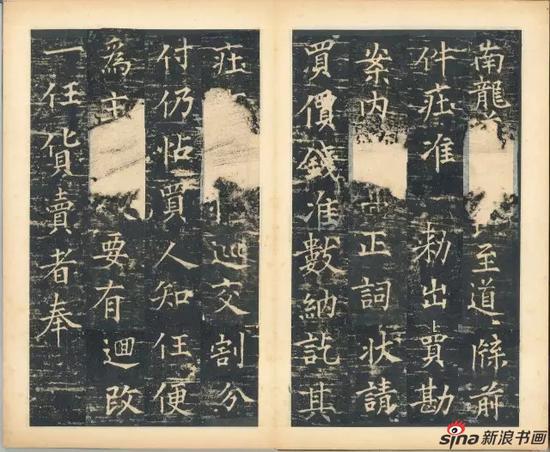 南龍 至道牒前
件庄准 勑出賣勘
案内 正詞狀請
買價錢准數納訖其
庄 巡交割分
付仍帖買人知任便
為主 要有迴改
一任貨賣者奉
sina新浪书画